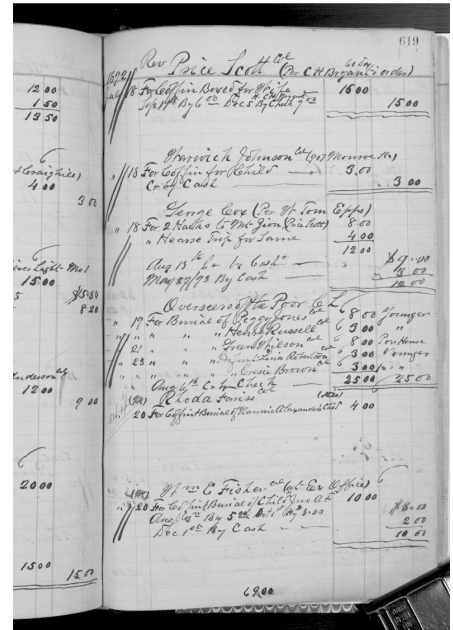 619
Rev Price Scott col (Per C H Bryant's order)
1892
July 18 For Coffin Boxed for Wife 15 00
Sep 17th By 6 00 Dec 5 By Check 9 00 15 00
Warwick Johnson col (907 Monroe St)
" 18 For Coffin for Child 3.00
Cr by Cash 3 00
George Cox (Per Wm Tom Epps)
" 18 For 2 Hacks to Mt Zion 8 00
" Hearse Trip for Same 4 00
12 00
Aug 13th Cr by Cash $9.00
May 29/93 By Cash 3 00
12 00
Overseers of the Poor C L
" 19 For Burial of Peggy Jones col 8 00 Younger
" " " " Henry Russell col 3 00 "
" 21 " " " Green Wilson col 8 00 Poor House
" 23 " " " Robinson col 3 00 Younger
" " " " Cresie Brown col 3 00 "
Aug 6th Cr by Check 25 00 25 00
Rhoda Fariss col
20 For Coffin & Burial of Nannie Alexander's Child 4 00
Wm E Fisher col (at Ex Office)
" 20 For Coffin & Burial of Child 10 00
Aug By 5 00 By 3.00 $8.00
Dec 1st By Cash 2 00
10 00
69.00
12 00
1 50
13 50
Craighill)
4 00
3 00
15 00
8 20
Anderson col
12 00
9 00
20 00
15 00
15 00